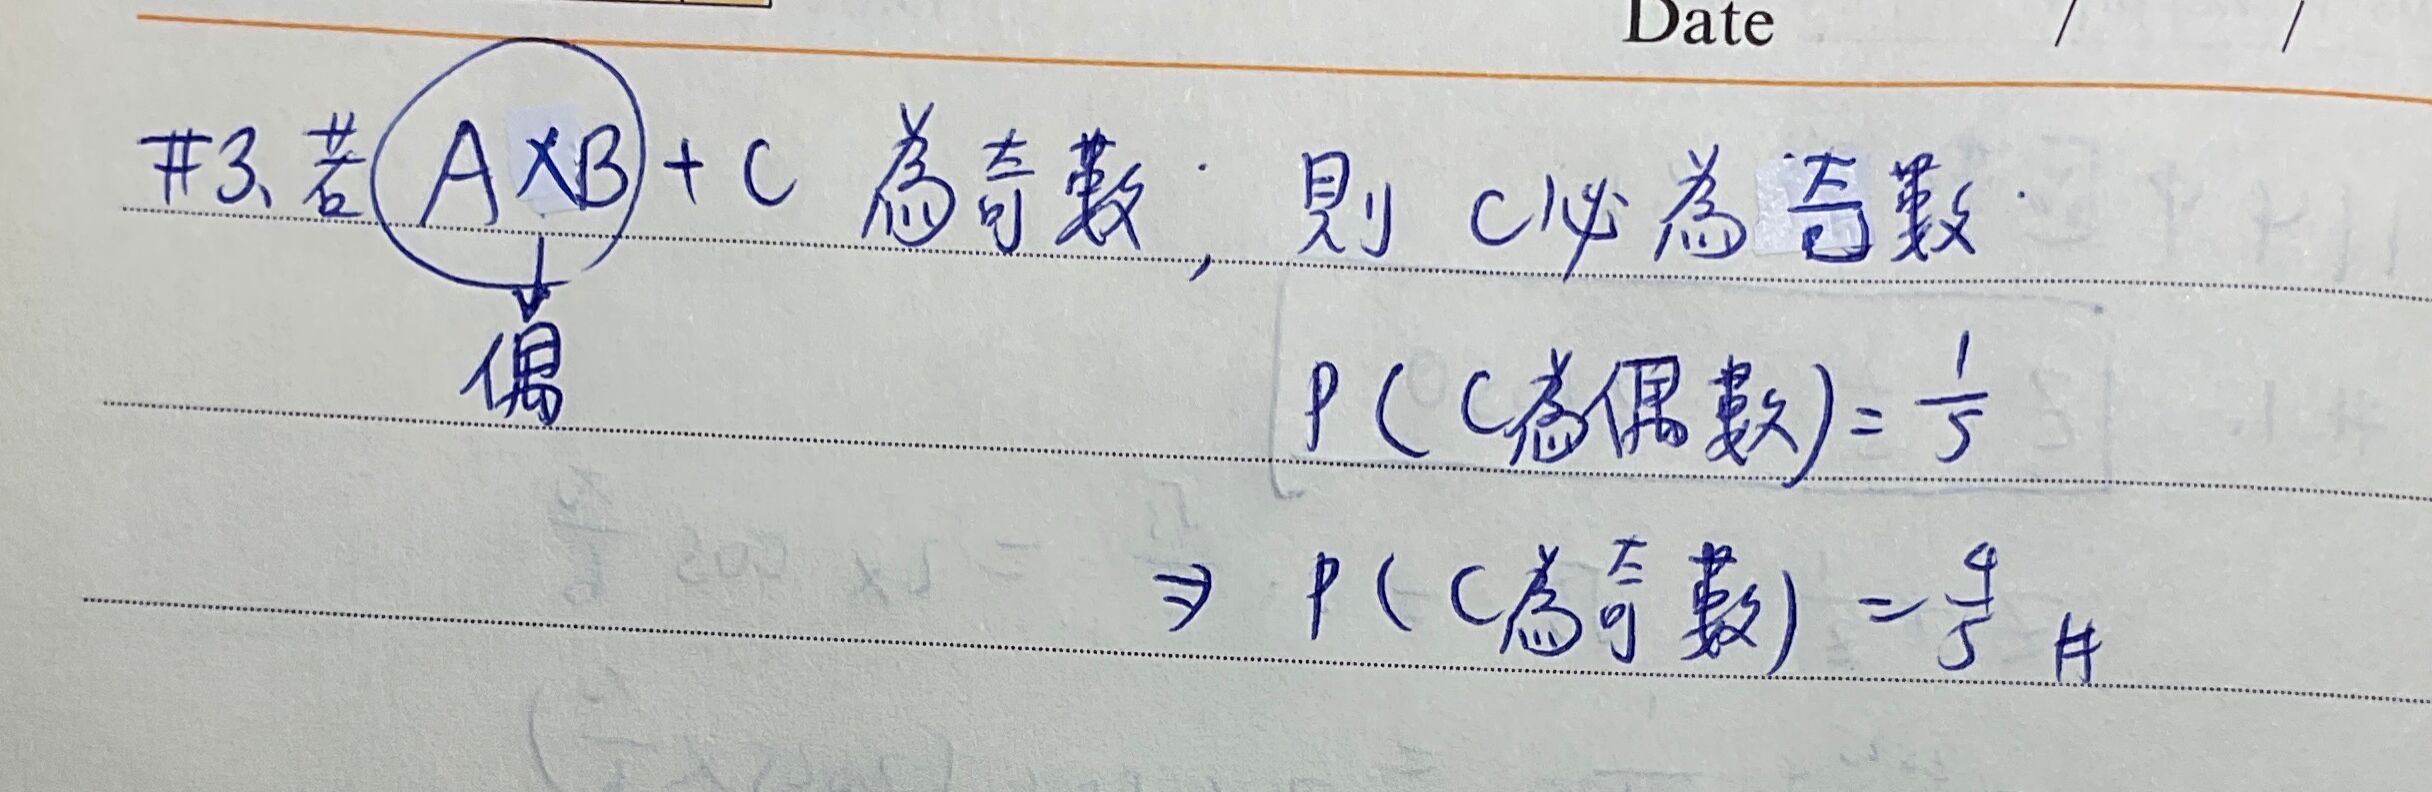 Date / /
#3、若 A×B + C 為奇數, 則 C必為奇數.
偶
P(C為偶數) = 1/5
⇒ P(C為奇數) = 4/5 #